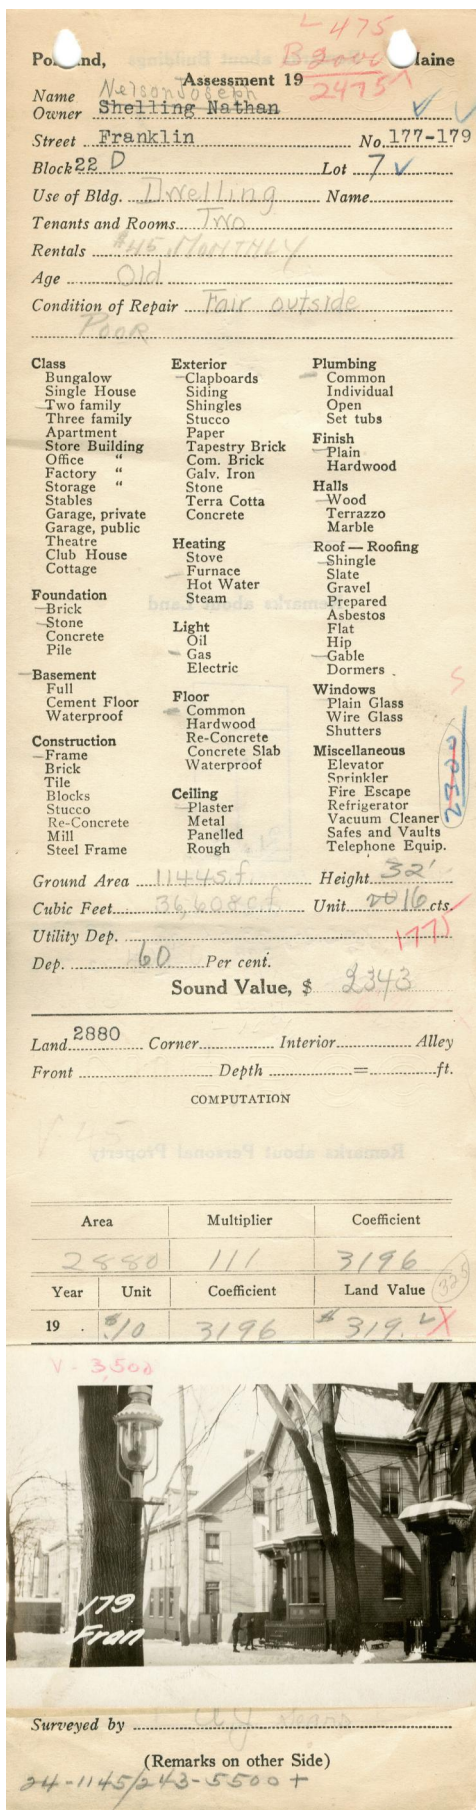 L 475
Portland, Maine
B 2000
Assessment 19
2475
Name Nelson Joseph
Owner Shelling Nathan
Street Franklin No. 177-179
Block 22 D Lot 7
Use of Bldg. Dwelling Name
Tenants and Rooms Two
Rentals $45 MONTHLY
Age Old
Condition of Repair Fair outside
POOR
Class
Bungalow
Single House
Two family
Three family
Apartment
Store Building
Office "
Factory "
Storage "
Stables
Garage, private
Garage, public
Theatre
Club House
Cottage
Foundation
Brick
Stone
Concrete
Pile
Basement
Full
Cement Floor
Waterproof
Construction
Frame
Brick
Tile
Blocks
Stucco
Re-Concrete
Mill
Steel Frame
Exterior
Clapboards
Siding
Shingles
Stucco
Paper
Tapestry Brick
Com. Brick
Galv. Iron
Stone
Terra Cotta
Concrete
Heating
Stove
Furnace
Hot Water
Steam
Light
Oil
Gas
Electric
Floor
Common
Hardwood
Re-Concrete
Concrete Slab
Waterproof
Ceiling
Plaster
Metal
Panelled
Rough
Plumbing
Common
Individual
Open
Set tubs
Finish
Plain
Hardwood
Halls
Wood
Terrazzo
Marble
Roof — Roofing
Shingle
Slate
Gravel
Prepared
Asbestos
Flat
Hip
Gable
Dormers
Windows
Plain Glass
Wire Glass
Shutters
Miscellaneous
Elevator
Sprinkler
Fire Escape
Refrigerator
Vacuum Cleaner
Safes and Vaults
Telephone Equip.
2300
Ground Area 1144 s.f. Height 32'
Cubic Feet 36,608 c.f. Unit 20 16 cts.
Utility Dep. 1775
Dep. 60 Per cent.
Sound Value, $ 2343
Land 2880 Corner Interior Alley
Front Depth = ft.
COMPUTATION
V-45
Remarks about Personal Property
Area Multiplier Coefficient
2880 111 3196
325
Year Unit Coefficient Land Value
19 . $.10 3196 $319.
V-3,500
179
Fran
Surveyed by
(Remarks on other Side)
24-1145/243-5500 +